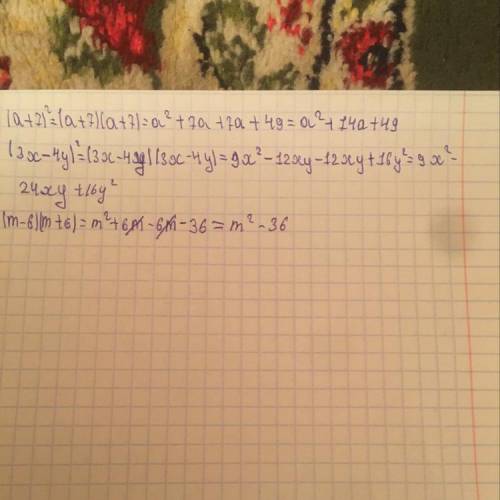 (a+7)²=(a+7)(a+7)=a²+7a+7a+49=a²+14a+49
(3x-4y)²=(3x-4y)(3x-4y)=9x²-12xy-12xy+16y²=9x²-
24xy+16y²
(m-6)(m+6)=m²+6m-6m-36=m²-36